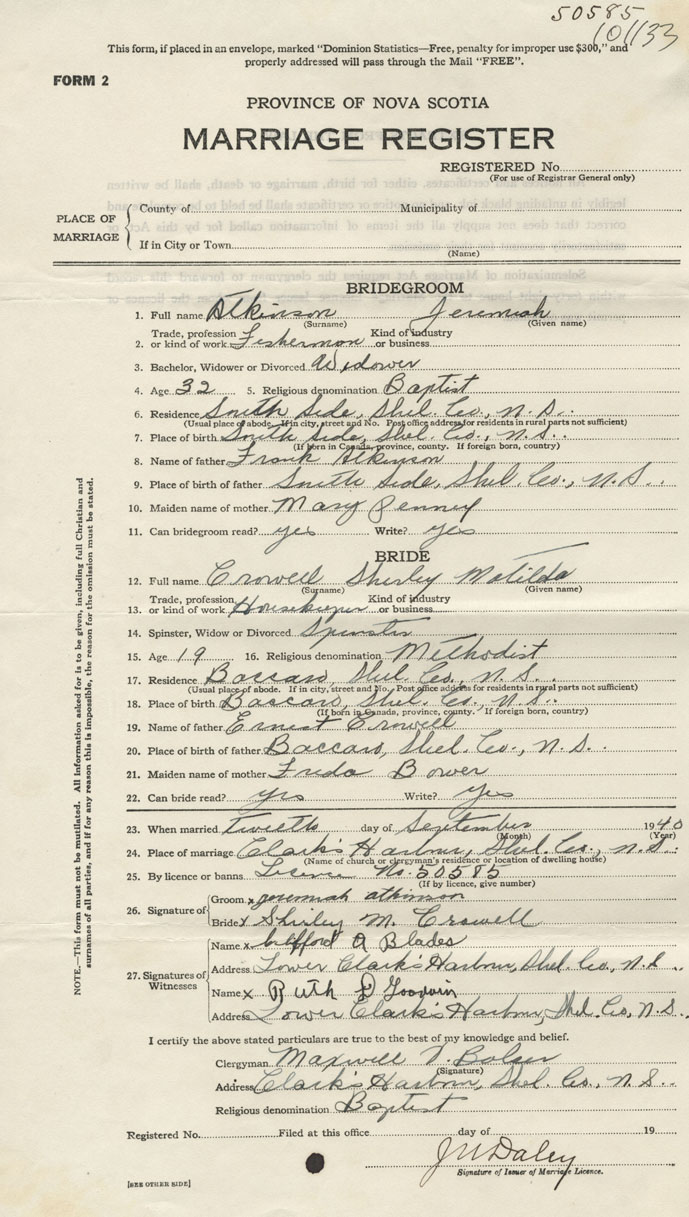 50585
101133
This form, if placed in an envelope, marked "Dominion Statistics—Free, penalty for improper use $300," and
properly addressed will pass through the Mail "FREE".
FORM 2
PROVINCE OF NOVA SCOTIA
MARRIAGE REGISTER
REGISTERED No.
(For use of Registrar General only)
PLACE OF MARRIAGE
County of Municipality of
If in City or Town
(Name)
BRIDEGROOM
1. Full name Atkinson Jeremiah
(Surname) (Given name)
Trade, profession Kind of industry
2. or kind of work Fisherman or business
3. Bachelor, Widower or Divorced Widower
4. Age 32 5. Religious denomination Baptist
6. Residence South Side, Shel. Co., N.S.
(Usual place of abode. If in city, street and No. Post office address for residents in rural parts not sufficient)
7. Place of birth South Side, Shel. Co., N.S.
(If born in Canada, province, county. If foreign born, country)
8. Name of father Frank Atkinson
9. Place of birth of father South Side, Shel. Co., N.S.
10. Maiden name of mother Mary Penney
11. Can bridegroom read? yes Write? yes
BRIDE
12. Full name Crowell Shirley Matilda
(Surname) (Given name)
Trade, profession Kind of industry
13. or kind of work Housekeeper or business
14. Spinster, Widow or Divorced Spinster
15. Age 19 16. Religious denomination Methodist
17. Residence Baccaro, Shel. Co., N.S.
(Usual place of abode. If in city, street and No. Post office address for residents in rural parts not sufficient)
18. Place of birth Baccaro, Shel. Co., N.S.
(If born in Canada, province, county. If foreign born, country)
19. Name of father Ernest Crowell
20. Place of birth of father Baccaro, Shel. Co., N.S.
21. Maiden name of mother Freda Bower
22. Can bride read? yes Write? yes
23. When married day of September 1940
(Month) (Year)
24. Place of marriage Clark's Harbour, Shel. Co., N.S.
(Name of church or clergyman's residence or location of dwelling house)
25. By licence or banns Licence No. 50585
(If by licence, give number)
26. Signature of
Groom x jeremiah atkinson
Bride x Shirley M. Crowell
27. Signatures of Witnesses
Name x A Blades
Address Lower Clark's Harbour, Shel. Co., N.S.
Name x Ruth D Goodwin
Address Lower Clark's Harbour, Shel. Co., N.S.
I certify the above stated particulars are true to the best of my knowledge and belief.
Clergyman Maxwell
(Signature)
Address Clark's Harbour, Shel. Co., N.S.
Religious denomination Baptist
Registered No. Filed at this office day of 19
Daley
Signature of Issuer of Marriage Licence.
[SEE OTHER SIDE]
NOTE.—This form must not be mutilated. All information asked for is to be given, including full Christian and
surnames of all parties, and if for any reason this is impossible, the reason for the omission must be stated.